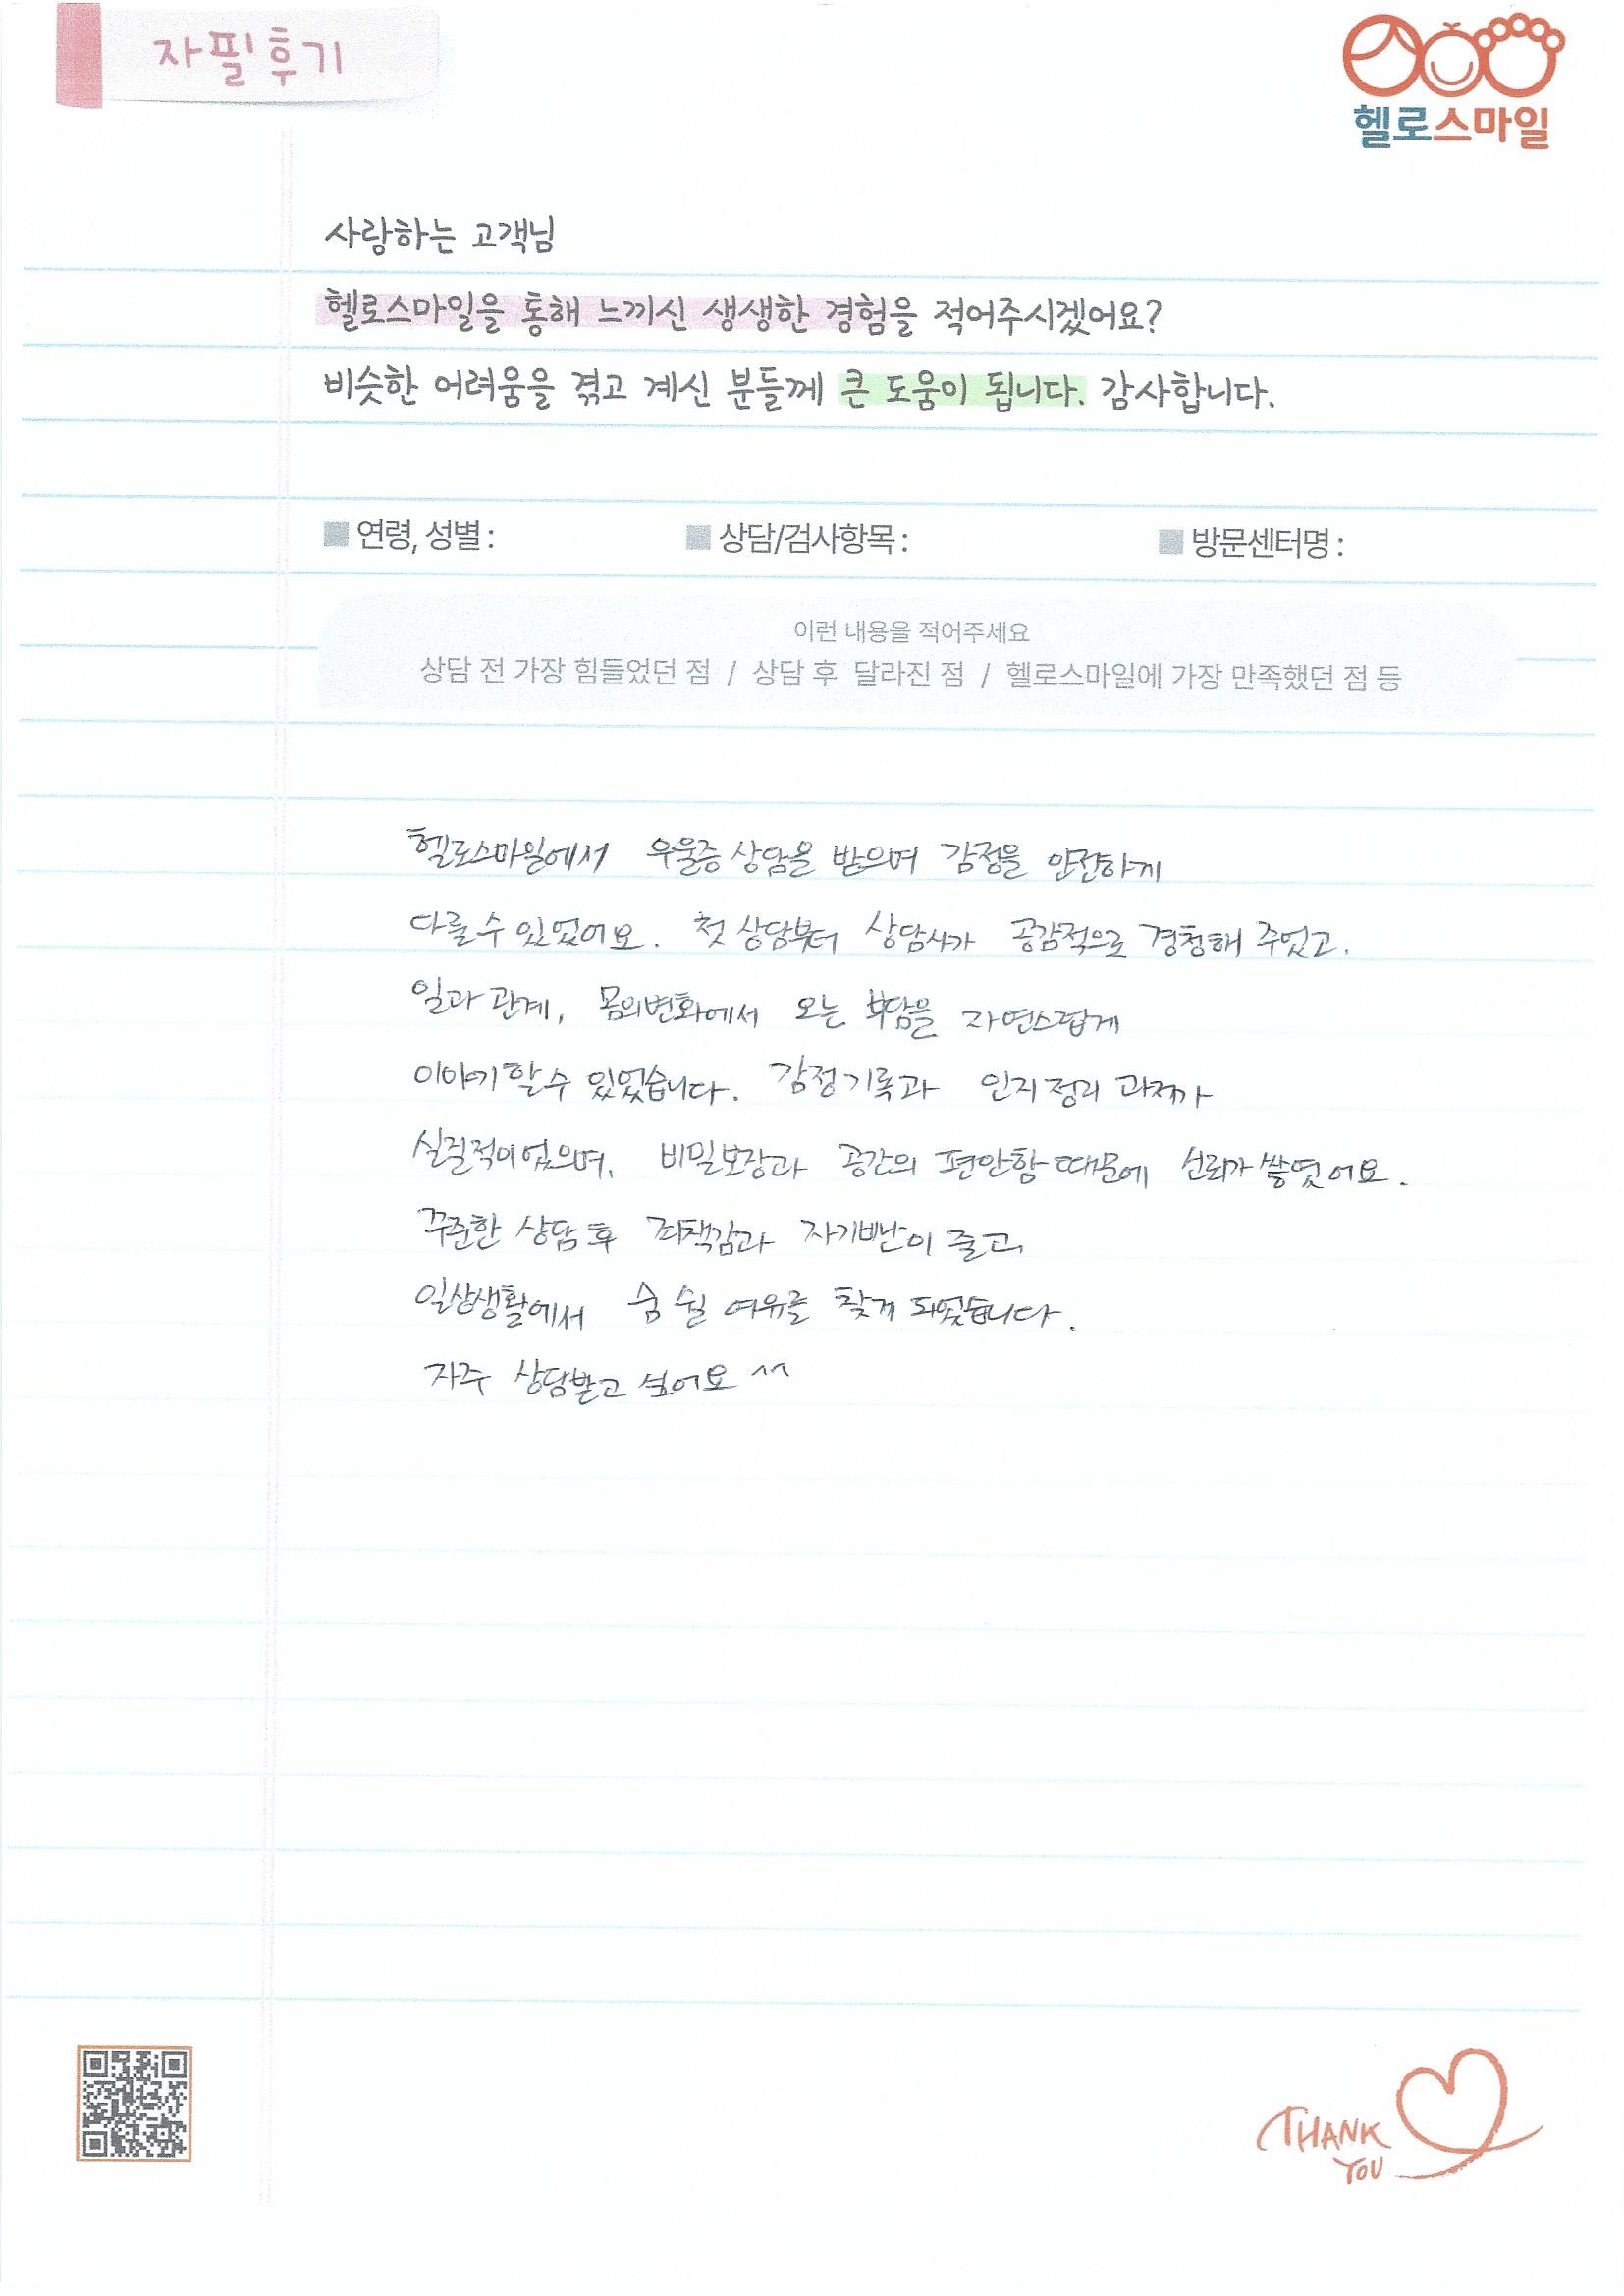 자필후기
헬로스마일
사랑하는 고객님
헬로스마일을 통해 느끼신 생생한 경험을 적어주시겠어요?
비슷한 어려움을 겪고 계신 분들께 큰 도움이 됩니다. 감사합니다.
연령, 성별 : 상담/검사항목 : 방문센터명 :
이런 내용을 적어주세요
상담 전 가장 힘들었던 점 / 상담 후 달라진 점 / 헬로스마일에 가장 만족했던 점 등
헬로스마일에서 우울증 상담을 받으며 감정을 안전하게
다룰 수 있었어요. 첫 상담부터 상담사가 공감적으로 경청해 주었고,
일과 관계, 몸의변화에서 오는 부담을 자연스럽게
이야기할 수 있었습니다. 감정기록과 인지 정리 과제가
실질적이었으며, 비밀보장과 공간의 편안함 때문에 신뢰가 쌓였어요.
꾸준한 상담 후 죄책감과 자기비난이 줄고,
일상생활에서 숨 쉴 여유를 찾게 되었습니다.
자주 상담받고 싶어요 ^^
THANK
YOU